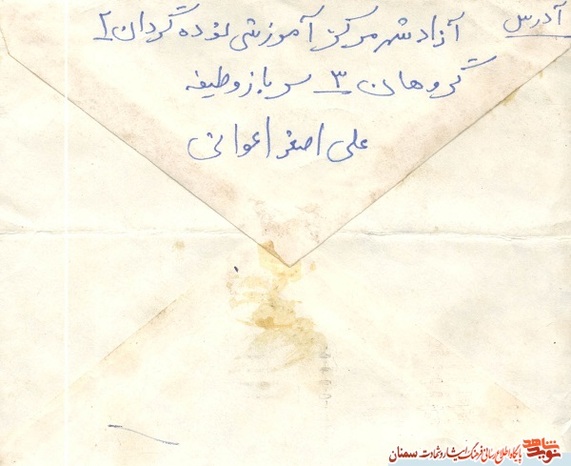 آدرس آزاد شهر مرکز آموزشی نوده گردان ۲
گروهان ۳ سرباز وظیفه
علی اصغر اعوانی
نوید شاهد پایگاه اطلاع رسانی فرهنگ ایثار و شهادت سمنان